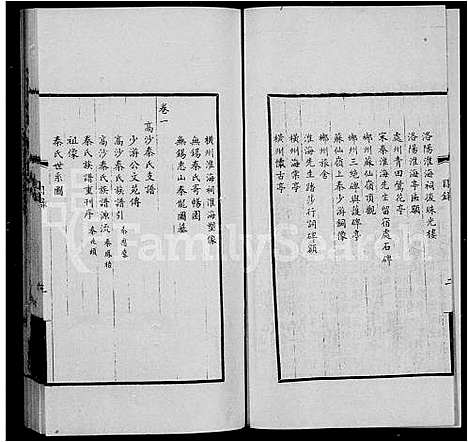 洛陽淮海祠後珠光樓
洛陽淮海亭匾額
處州青田鶯花亭
宋秦淮海先生留宿處石碑
郴州蘇仙嶺頂觀
郴州三絕碑與護碑亭
蘇仙嶺上秦少游銅像
郴州旅舍
淮海先生踏莎行詞碑額
橫州海棠亭
橫州懷古亭
目錄
二
橫州淮海祠淮海塑像
無錫秦氏寄暢園
無錫惠山秦龍圖墓
卷一
高沙秦氏支譜
少游公文苑傳
高沙秦氏族譜引
高沙秦氏族譜源流
秦氏族譜重刊序
祖像
秦氏世系圖
目錄
FamilySearch